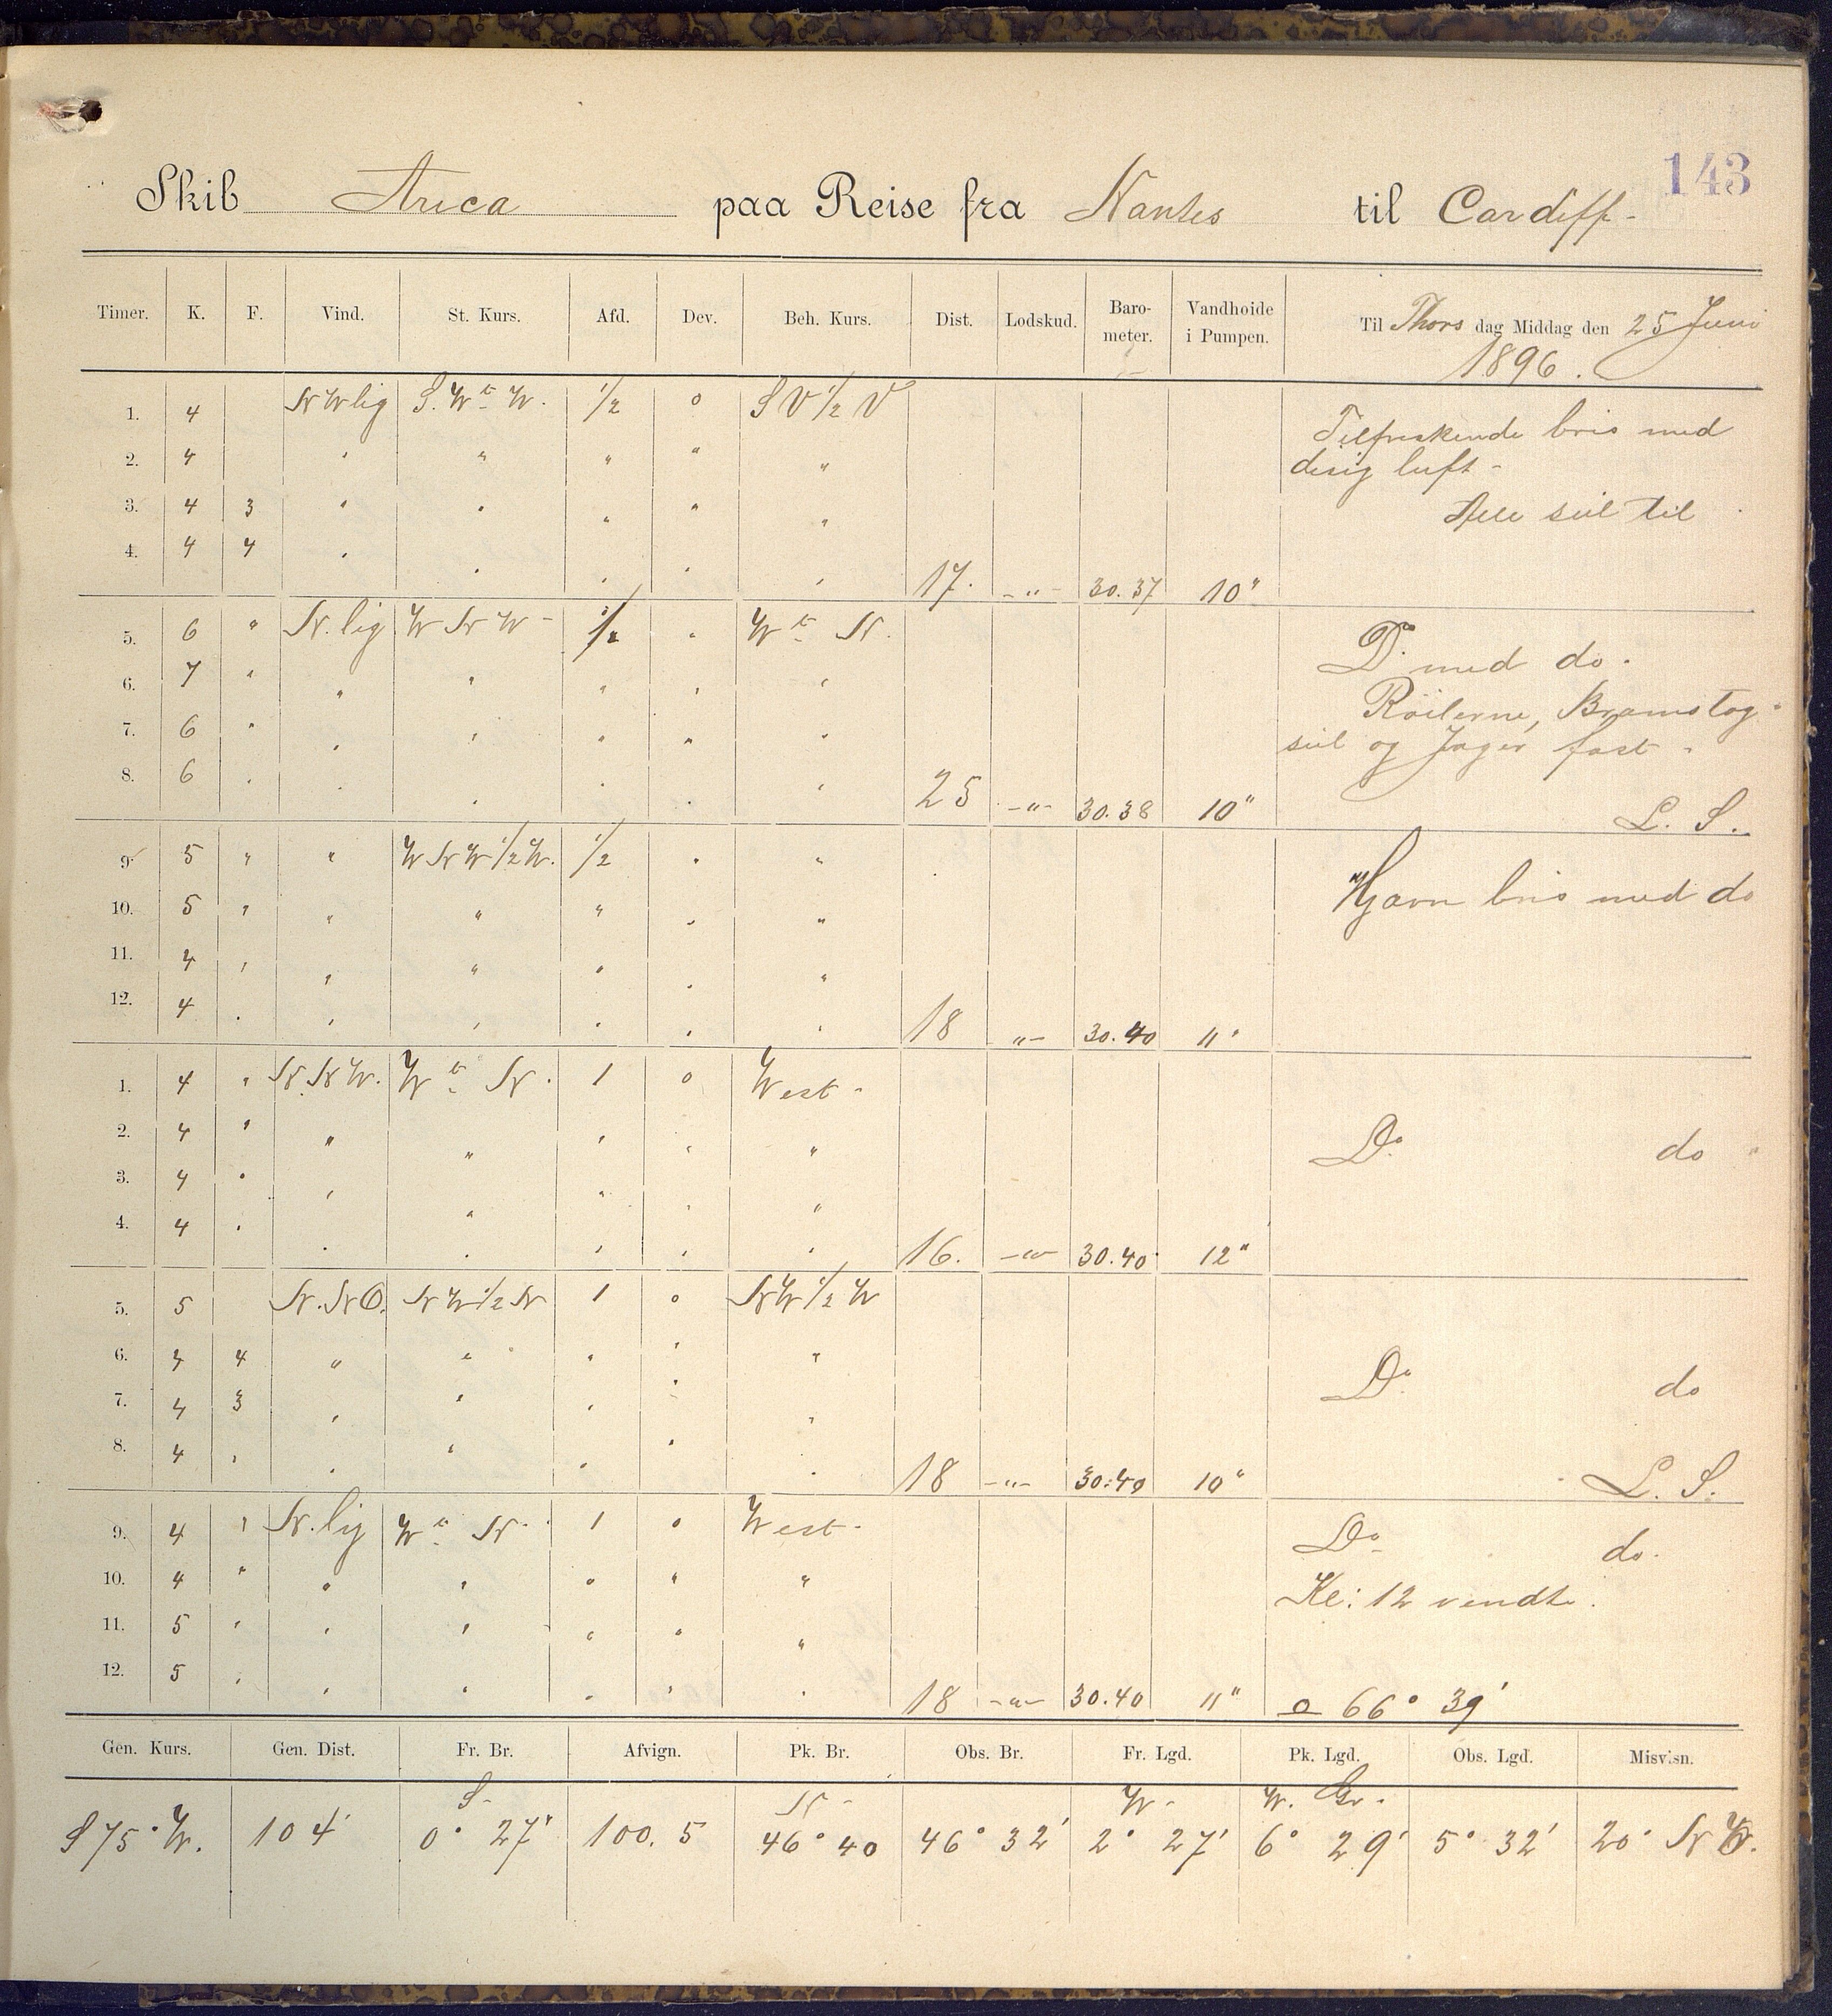 143
Skib Arica paa Reise fra Nantes til Cardiff-
Timer. K. F. Vind. St. Kurs. Afd. Dev. Beh. Kurs. Dist. Lodskud. Baro-meter. Vandhoide i Pumpen. Til Thors dag Middag den 25 Juni
1896.
1. 4 NWlig S.W t W. 1/2 o SV 1/2 V Tilfriskende bris med
2. 4 " " " " " disig luft -
3. 4 3 " " " " " Alle seil til
4. 4 4 " " " " " 17. -"- 30.37 10"
5. 6 " N.lig WNW- 1/2 " W t N. Do med do.
6. 7 " " " " " " Röilerne, Bramstag-
7. 6 " " " " " " seil og Jager fast -
8. 6 " " " " " " 25 -"- 30.38 10" L. S.
9. 5 " " WNW 1/2 W. 1/2 " " Hjavn bris med do
10. 5 " " " " " "
11. 4 " " " " " "
12. 4 " " " " " " 18 "- 30.40 11"
1. 4 " NNW. W t N. 1 o West-
2. 4 " " " " " " Do do
3. 4 " " " " " "
4. 4 " " " " " " 16. -"- 30.40 12"
5. 5 N.NO. NW 1/2 N 1 o NW 1/2 W
6. 4 4 " " " " " Do do
7. 4 3 " " " " "
8. 4 " " " " " " 18 -"- 30.40 10" L. S.
9. 4 " N.lig W t N. 1 o West- Do do.
10. 4 " " " " " " Kl: 12 vendte.
11. 5 " " " " " "
12. 5 " " " " " " 18 -"- 30.40 11" o 66° 39'
Gen. Kurs. Gen. Dist. Fr. Br. Afvign. Pk. Br. Obs. Br. Fr. Lgd. Pk. Lgd. Obs. Lgd. Misvisn.
S- N- W- W. Gr.
S75°W. 104' 0° 27' 100.5 46° 40 46° 32' 2° 27' 6° 29' 5° 32' 20° NW.